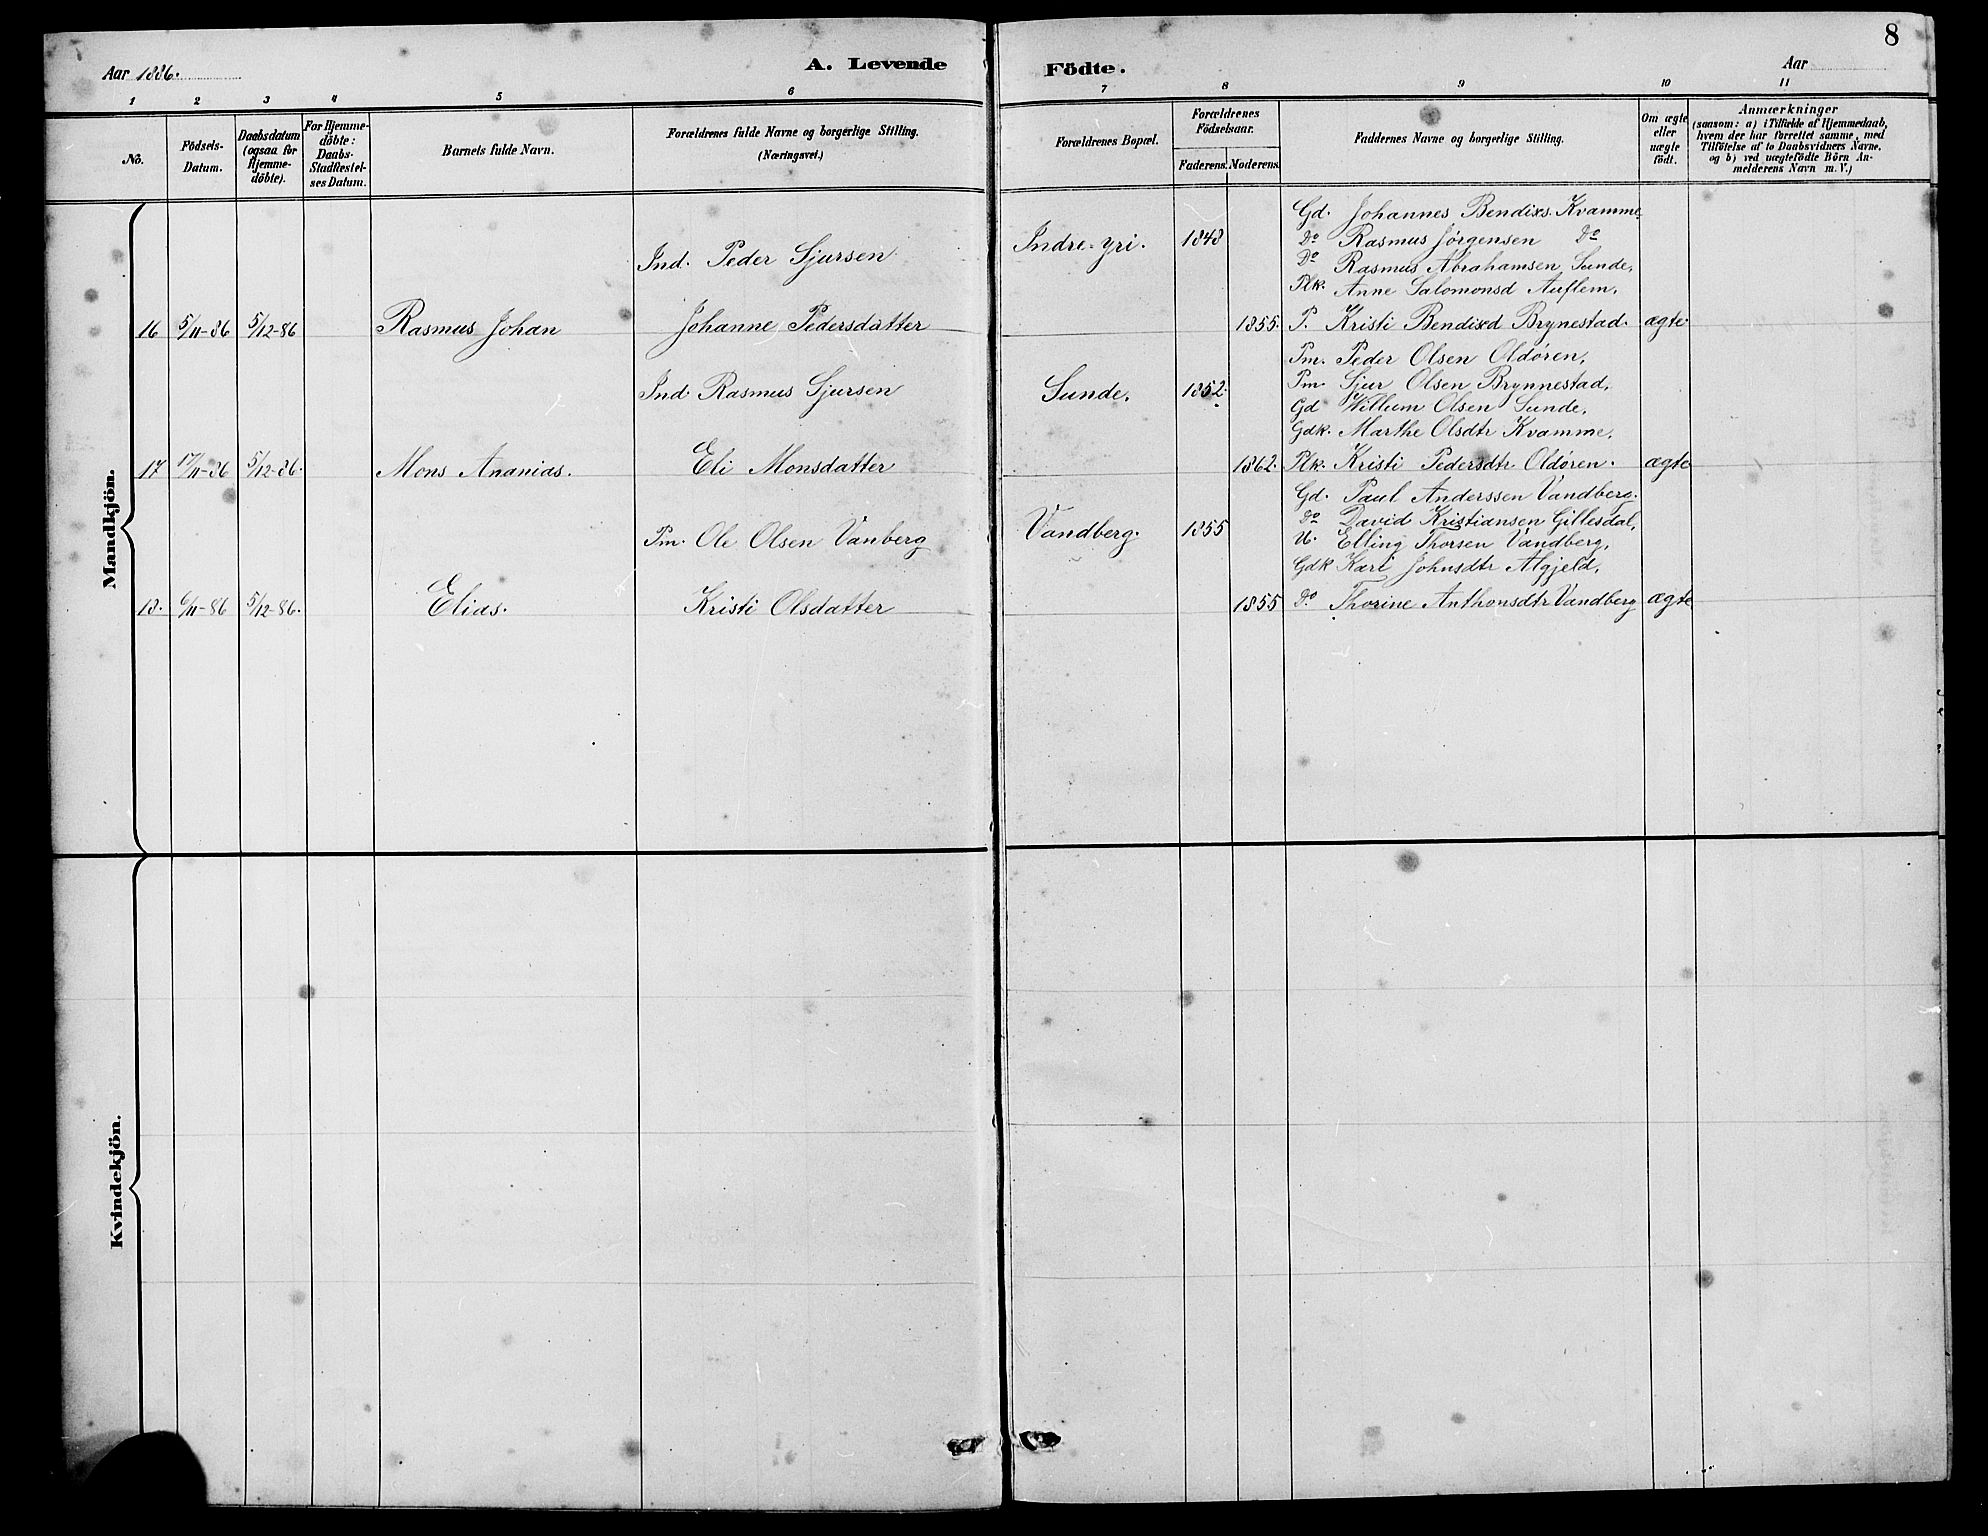 8
Aar 1886.
A. Levende Födte.
Aar
1 2 3 4 5 6 7 8 9 10 11
No.
Födsels-Datum.
Daabsdatum (ogsaa for Hjemme-döbte).
For Hjemme-döbte: Daabs-Stadfæstel-ses Datum.
Barnets fulde Navn.
Forældrenes fulde Navne og borgerlige Stilling.
(Næringsvei.)
Forældrenes Bopæl.
Forældrenes Födselsaar.
Faderens. Moderens.
Faddernes Navne og borgerlige Stilling.
Om ægte eller uægte födt.
Anmærkninger
(saasom: a) i Tilfælde af Hjemmedaab,
hvem der har forrettet samme, med
Tilföielse af to Daabsvidners Navne,
og b) ved uægtefödte Börn An-
melderens Navn m. V.)
Mandkjön.
Ind. Peder Sjursen
Indre-yri. 1848
Gd. Johannes Bendixs. Kvamme
Do Rasmus Jørgensen Do
Do Rasmus Abrahamsen Sunde,
Plk. Anne Salomonsd Auflem.
16 5/11-86 5/12-86 Rasmus Johan Johanne Pedersdatter 1855. P. Kristi Bendixd Brynestad. ægte.
Pm. Peder Olsen Oldøren,
Ind. Rasmus Sjursen Sunde. 1852. Pm. Sjur Olsen Brynnestad,
Gd Willum Olsen Sunde,
Gdk. Marthe Olsdtr Kvamme,
17 17/11-86 5/12-86. Mons Ananias. Eli Monsdatter 1862. Plk. Kristi Pedersdtr Oldøren. ægte
Gd. Paul Anderssen Vandberg.
Pm. Ole Olsen Vanberg Vandberg. 1855 Do David Kristiansen Gillesdal,
U. Elling Thorsen Vandberg,
Gdk Kari Johnsdtr Algjeld,
18. 6/11-86 5/12-86. Elias. Kristi Olsdatter 1855 Do Thorine Anthonsdtr Vandberg ægte
Kvindekjön.